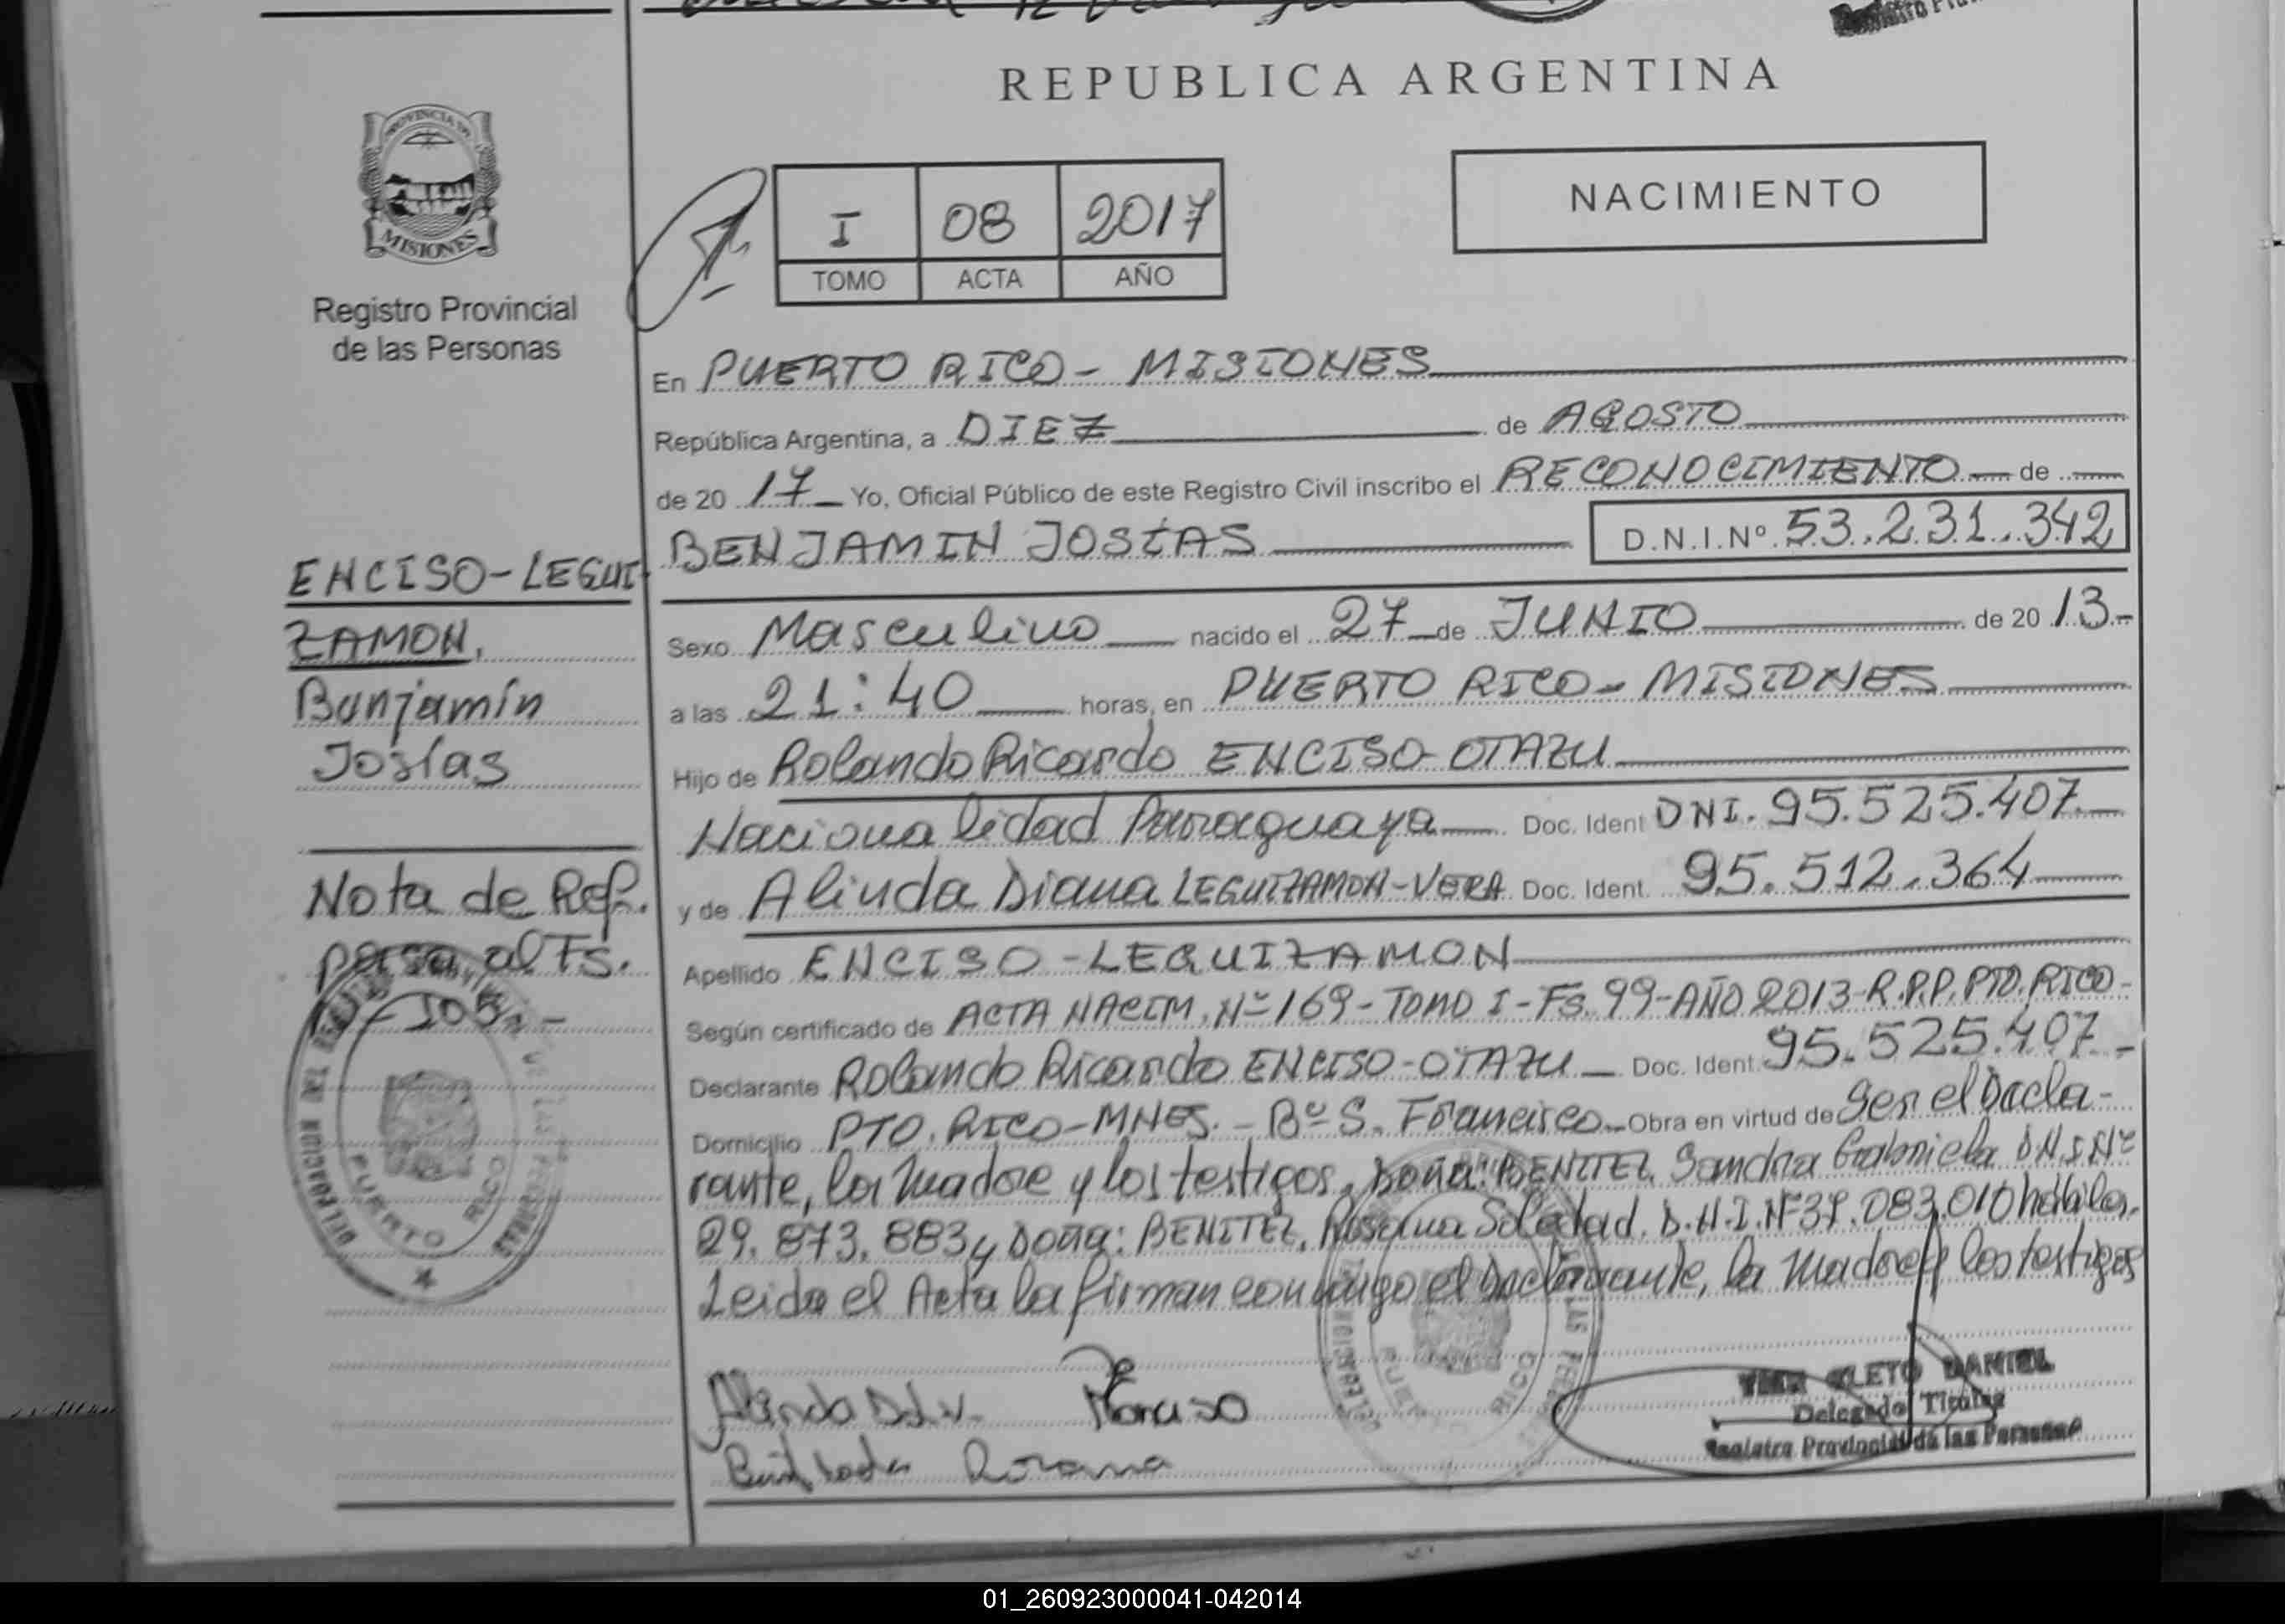 REPUBLICA ARGENTINA
PROVINCIA DE
MISIONES
Registro Provincial
de las Personas
NACIMIENTO
I 08 2017
TOMO ACTA AÑO
En PUERTO RICO - MISIONES
República Argentina, a DIEZ de AGOSTO
de 20 17 Yo, Oficial Público de este Registro Civil inscribo el RECONOCIMIENTO de
BENJAMIN JOSÍAS D.N.I.Nº 53.231.342
ENCISO-LEGUI
ZAMON,
Banjamín
Josías
Sexo Masculino nacido el 27 de JUNIO de 20 13.-
a las 21:40 horas, en PUERTO RICO - MISIONES
Hijo de Rolando Ricardo ENCISO-OTAZU
Nacionalidad Paraguaya Doc. Ident DNI. 95.525.407
y de Alinda Diana LEGUIZAMON-VERA Doc. Ident. 95.512.364
Nota de Ref.
pasa al Fs.
Apellido ENCISO-LEGUIZAMON
Según certificado de ACTA NACIM. Nº 169 - TOMO I - Fs. 99 - AÑO 2013 - R.P.P. PTO. RICO -
Declarante Rolando Ricardo ENCISO-OTAZU Doc. Ident. 95.525.407.-
Domicilio PTO. RICO - MNES. - Bº S. Francisco Obra en virtud de Ser el Decla-
rante, la Madre y los testigos, Doña: BENITEZ, Sandra Gabriela D.N.I Nº
29.873.883 y Doña: BENITEZ, Rosana Soledad. D.N.I. Nº 37.083.010 hábiles.
Leida el Acta la firman conmigo el Declarante, la Madre y los testigos
PUERTO RICO
Rosana
CLETO DANIEL
Delegado Titular
Registro Provincial de las Personas
01_260923000041-042014